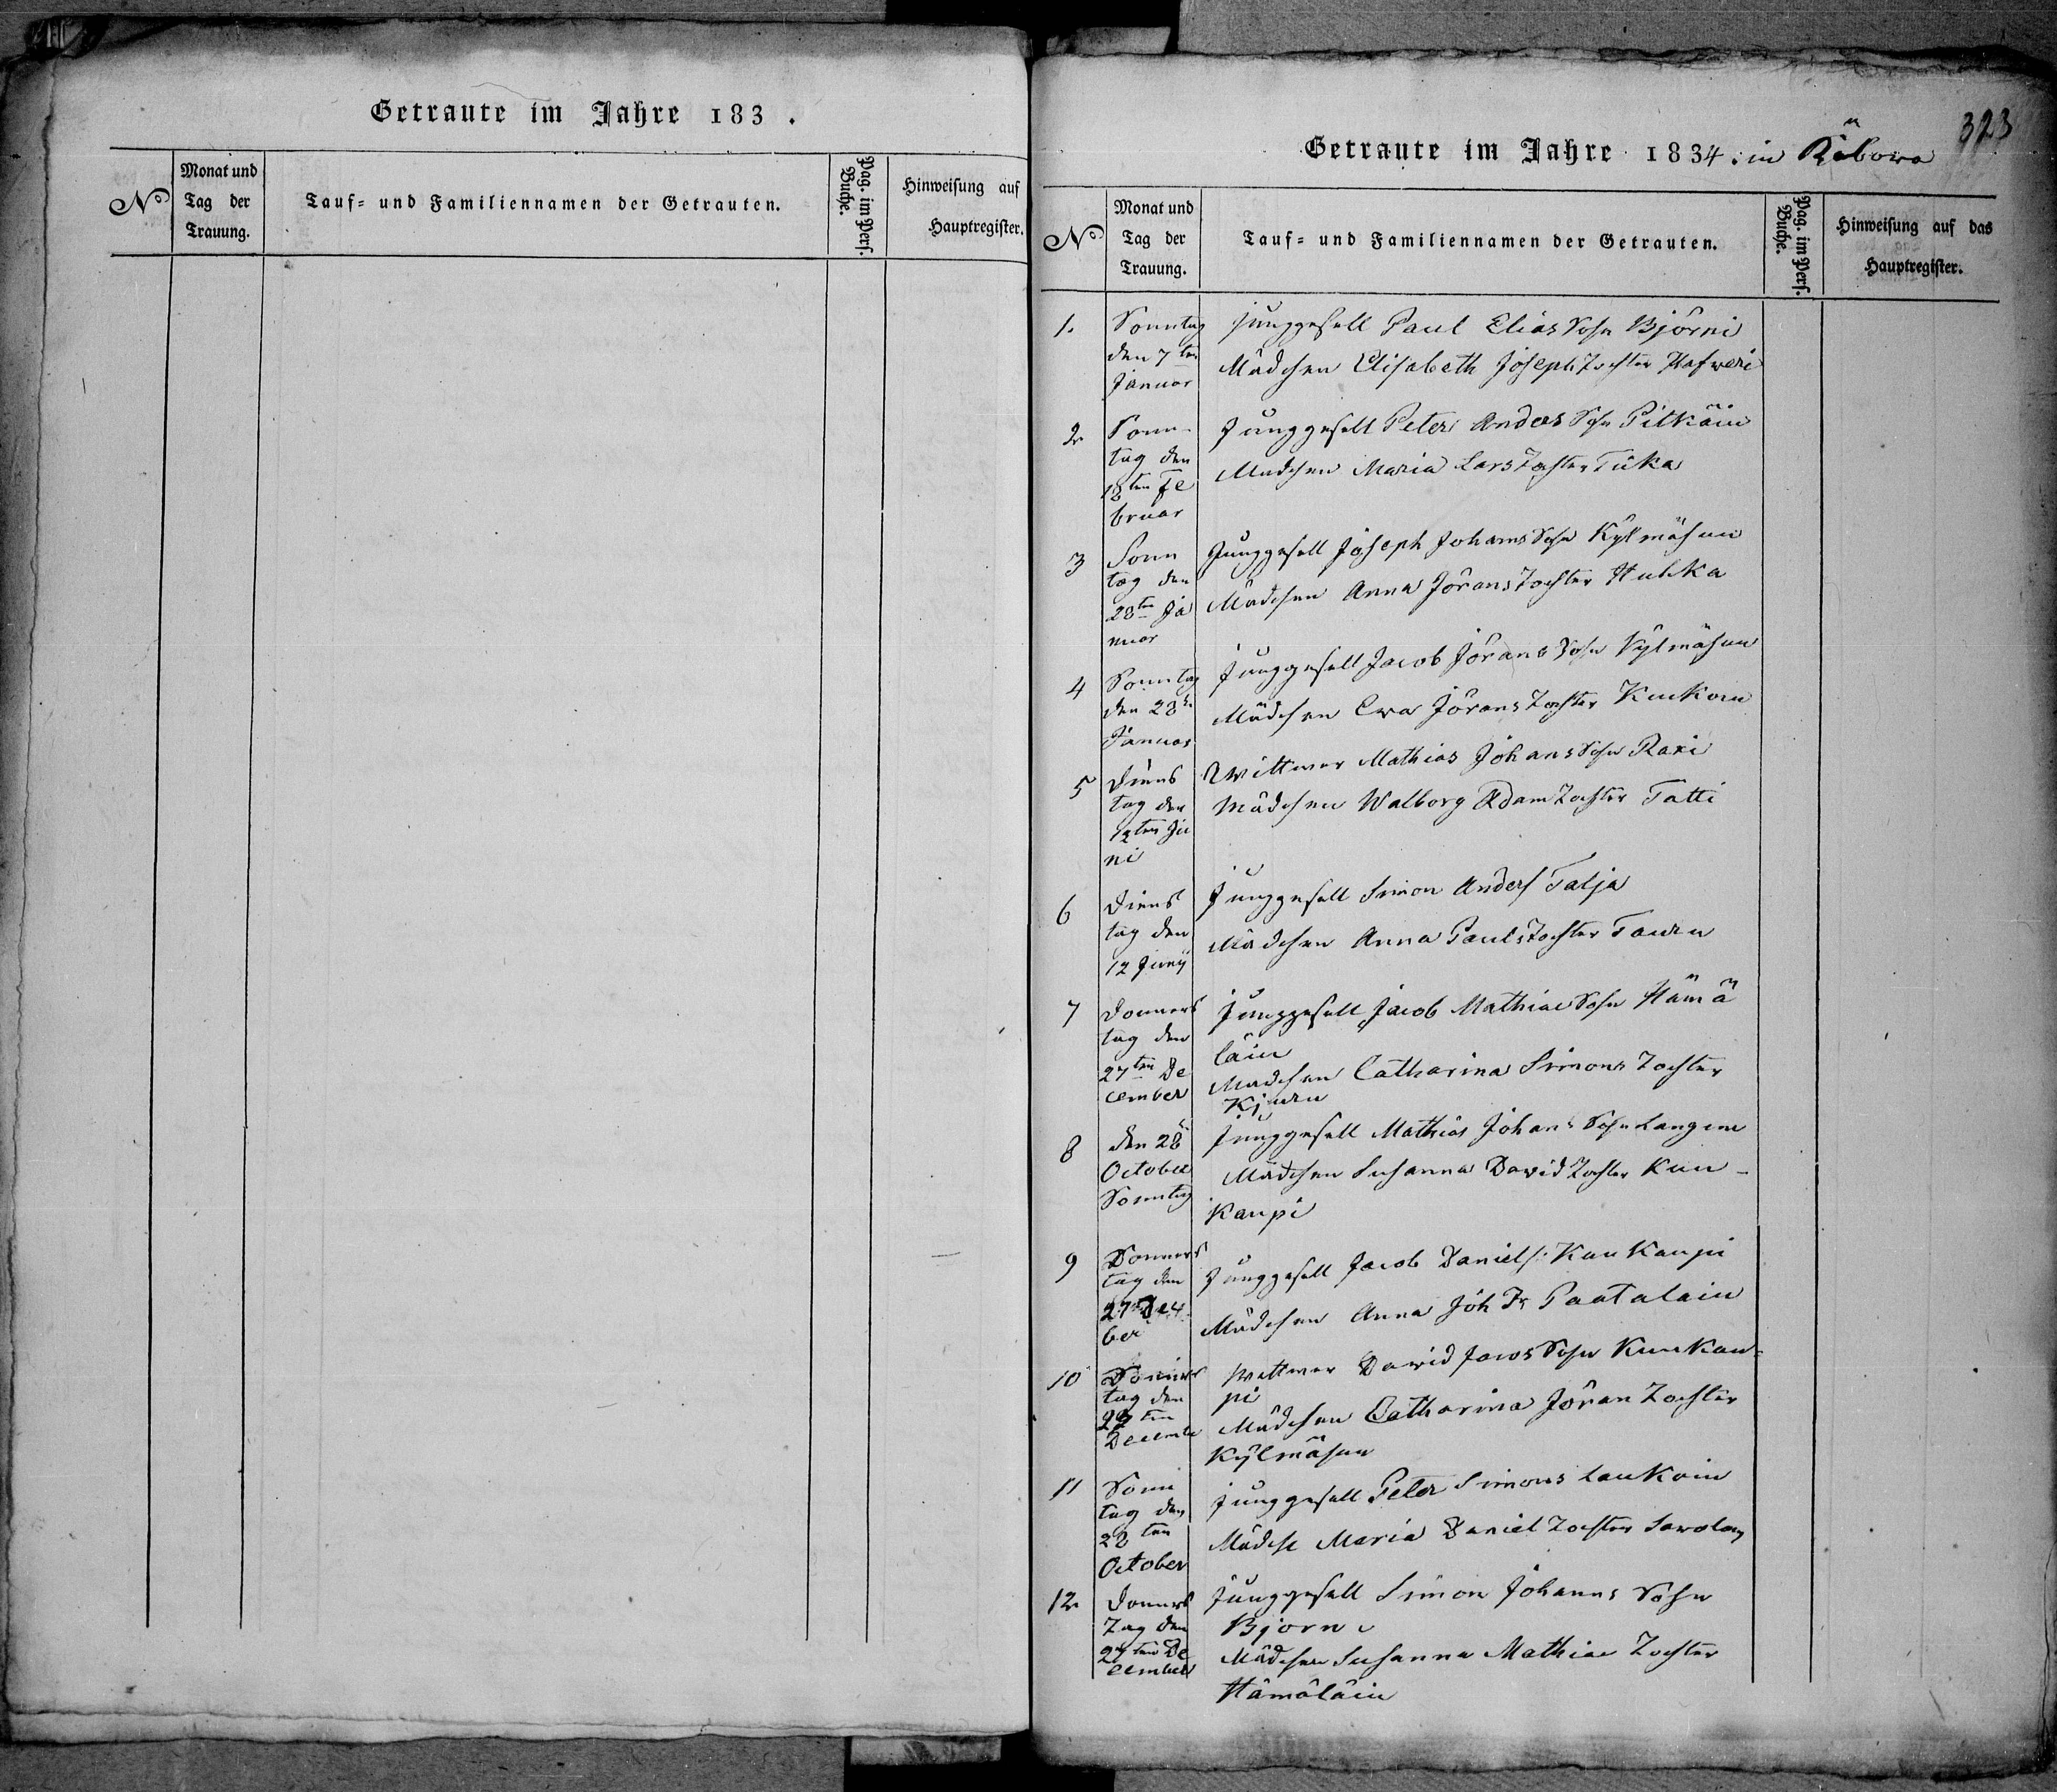 Getraute im Jahre 183 .
No
Monat und
Tag der
Trauung.
Tauf- und Familiennamen der Getrauten.
Pag. im Pers.
Buche.
Hinweisung auf
Hauptregister.
323
Getraute im Jahre 1834. in Räbowa
No
Monat und
Tag der
Trauung.
Tauf- und Familiennamen der Getrauten.
Pag. im Pers.
Buche.
Hinweisung auf das
Hauptregister.
1.
Sonntag
den 7ten
Januar
Junggesell Paul Elias Sohn Björni
Mädchen Elisabeth Joseph Tochter
2
Sonn-
tag den
18ten Fe
bruar
Junggesell Peter Anders Sohn Pitkäin
Mädchen Maria Lars Tochter Tuka
3
Sonn
tag den
28ten Ja
nuar
Junggesell Joseph Johanns Sohn Kylmäsun
Mädchen Anna Jörans Tochter Huhka
4
Sonntag
den 28
Januar
Junggesell Jacob Jörans Sohn Kylmäsun
Mädchen Ewa Jörans Tochter Kukoin
5
Diens
tag den
12ten Ju
ni
Wittwer Mathias Johans Sohn Raxi
Mädchen Walborg Adam Tochter Tatti
6
Diens
tag den
12 Juny
Junggesell Simon Anders Talja
Mädchen Anna Pauls Tochter Tauru
7
Donners
tag den
27ten De
cember
Junggesell Jacob Mathias Sohn Hämä
läin
Mädchen Catharina Simons Tochter
Kjuru
8
den 28
October
Sonntag
Junggesell Mathias Johans Sohn Langine
Mädchen Susanna David Tochter Kun-
kanpi
9
Donners
tag den
27
ber
Junggesell Jacob Daniels: Kunkanpi
Mädchen Anna Joh Tr Paatalain
10
tag den
27ten
Decembe
Wittwer David Jacobs Sohn Kunkan-
pi
Mädchen Catharina Jöran Tochter
Kylmäsun
11
Sonn
tag den
28ten
October
Junggesell Peter Simons Laukoin
Mädch Maria Daniel Tochter Sawolain
12
Donners
Tag den
27ten De
cember
Junggesell Simon Johanns Sohn
Bjorni
Mädchen Susanna Mathias Tochter
Hämäläin